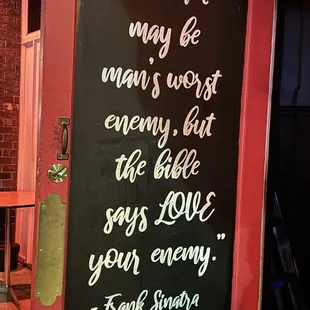 may be
man's worst
enemy, but
the bible
says LOVE
your enemy."
- Frank Sinatra